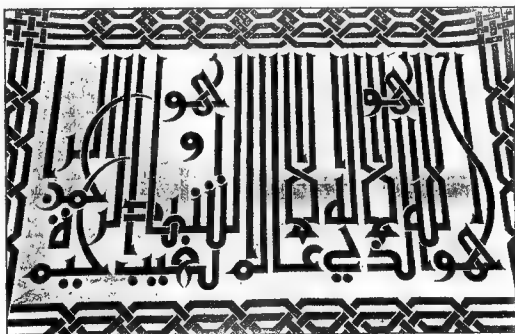 هو الله الذي لا إله إلا هو عالم الغيب و الشهادة هو الرحمن الرحيم